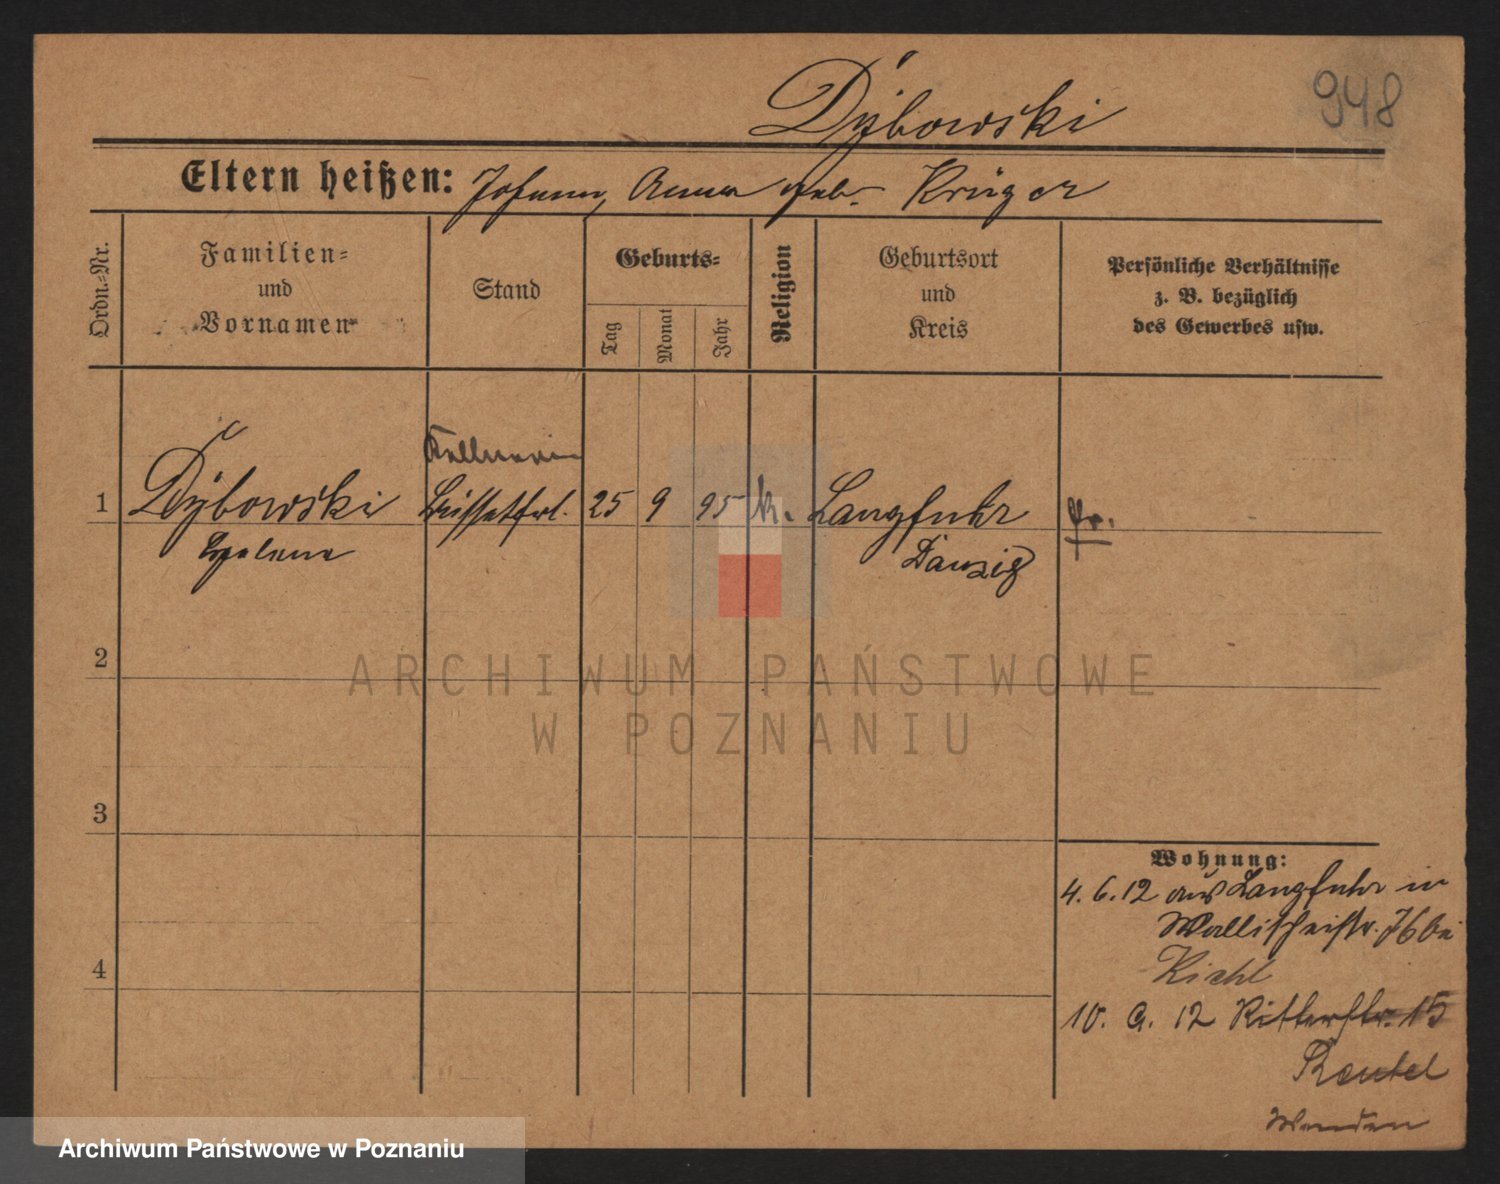 Dybowski
948
Eltern heißen: Johann, Anna geb. Krüger
Ordn.=Nr.
Familien=
und
Vornamen
Stand
Geburts=
Tag
Monat
Jahr
Religion
Geburtsort
und
Kreis
Persönliche Verhältnisse
z. B. bezüglich
des Gewerbes usw.
Kellnerin
1 Dybowski Büffetfrl. 25 9 95 k. Langfuhr Pr.
Helene Danzig
2
3
4
ARCHIWUM PAŃSTWOWE
W POZNANIU
Wohnung:
4. 6. 12 aus Langfuhr in
Wallischeistr. 76 bei
10. 12 Ritterstr. 15
Archiwum Państwowe w Poznaniu